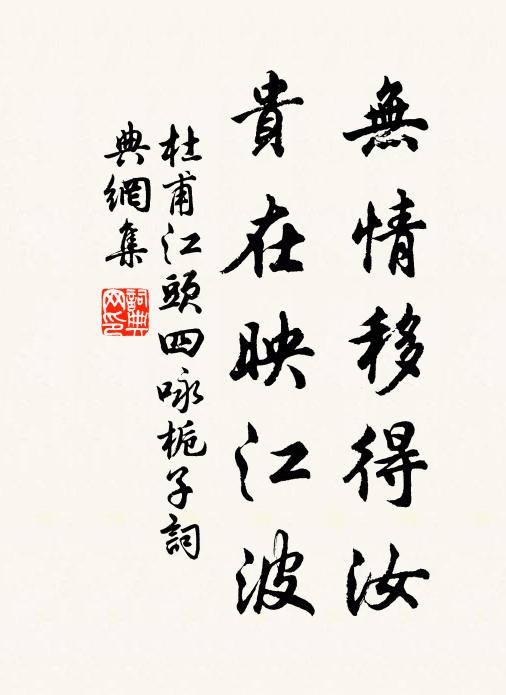 無情移得汝
貴在映江波
杜甫江頭四咏梔子詞
典網集
詞典網印